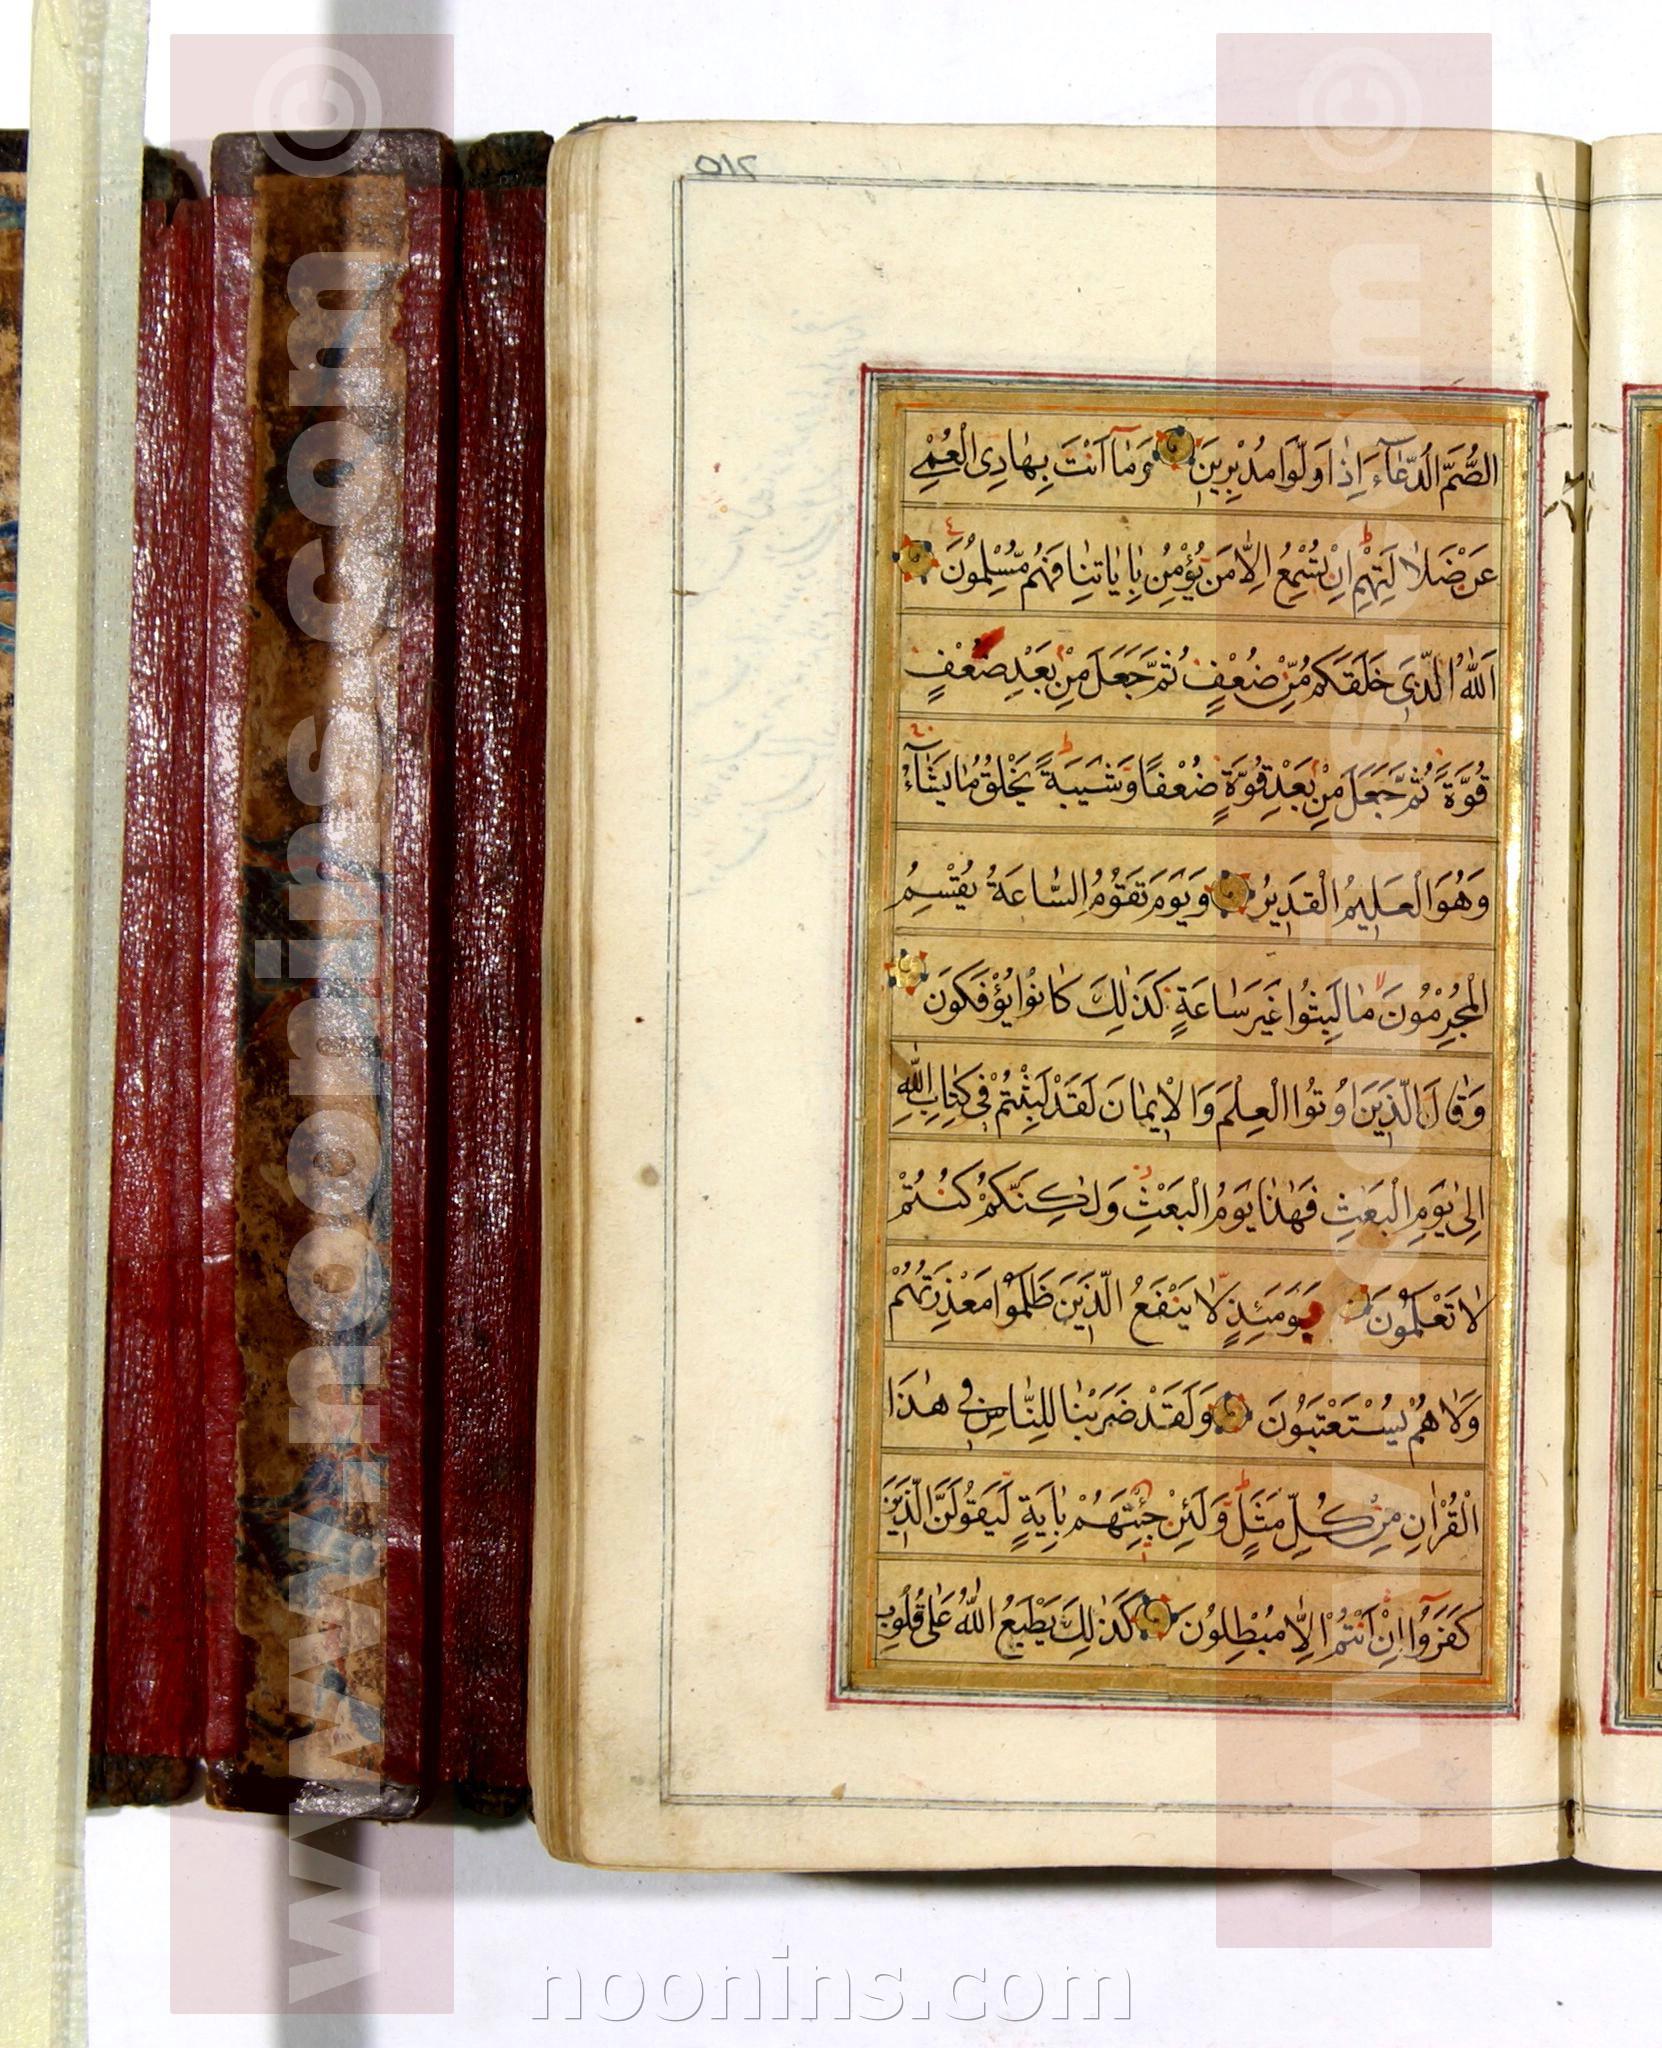 ٥١٢
الصُّمَّ الدُّعَآءَ اِذَا وَلَّوْا مُدْبِرِينَ وَمَآ اَنْتَ بِهَادِى الْعُمْىِ
عَنْ ضَلَالَتِهِمْ اِنْ تُسْمِعُ اِلَّا مَنْ يُؤْمِنُ بِاٰيَاتِنَا فَهُمْ مُسْلِمُونَ
اَللّٰهُ الَّذِى خَلَقَكُمْ مِنْ ضُعْفٍ ثُمَّ جَعَلَ مِنْ بَعْدِ ضُعْفٍ
قُوَّةً ثُمَّ جَعَلَ مِنْ بَعْدِ قُوَّةٍ ضُعْفًا وَشَيْبَةً يَخْلُقُ مَا يَشَآءُ
وَهُوَ الْعَلِيمُ الْقَدِيرُ وَيَوْمَ تَقُومُ السَّاعَةُ يُقْسِمُ
الْمُجْرِمُونَ مَا لَبِثُوا غَيْرَ سَاعَةٍ كَذٰلِكَ كَانُوا يُؤْفَكُونَ
وَقَالَ الَّذِينَ اُوتُوا الْعِلْمَ وَالْاِيمَانَ لَقَدْ لَبِثْتُمْ فِى كِتَابِ اللّٰهِ
اِلٰى يَوْمِ الْبَعْثِ فَهٰذَا يَوْمُ الْبَعْثِ وَلٰكِنَّكُمْ كُنْتُمْ
لَا تَعْلَمُونَ فَيَوْمَئِذٍ لَا يَنْفَعُ الَّذِينَ ظَلَمُوا مَعْذِرَتُهُمْ
وَلَا هُمْ يُسْتَعْتَبُونَ وَلَقَدْ ضَرَبْنَا لِلنَّاسِ فِى هٰذَا
الْقُرْاٰنِ مِنْ كُلِّ مَثَلٍ وَلَئِنْ جِئْتَهُمْ بِاٰيَةٍ لَيَقُولَنَّ الَّذِينَ
كَفَرُوٓا اِنْ اَنْتُمْ اِلَّا مُبْطِلُونَ كَذٰلِكَ يَطْبَعُ اللّٰهُ عَلٰى قُلُوبِ
www.noonins.com ©
www.noonins.com ©
noonins.com